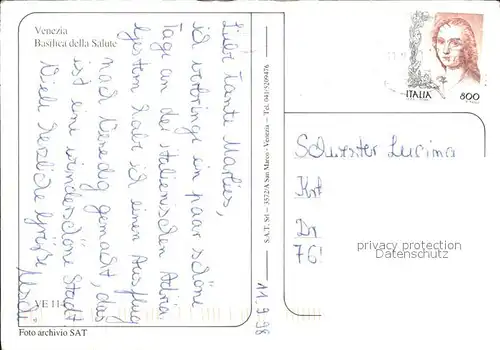 Venezia
Basilica della Salute
Liebe Tante Marlies,
ich verbringe ein paar schöne
Tage an der italienischen Adria
Gestern habe ich einen Ausflug
nach Venedig gemacht, das
ist eine wunderschöne Stadt
Viele herzliche Grüße
11.9.98
VE 114
Foto archivio SAT
S.A.T. Srl - 3532/A San Marco - Venezia - Tel. 041/5209476
ITALIA 800
Schwester Lucima
Kvt
Dr
76
privacy protection
Datenschutz